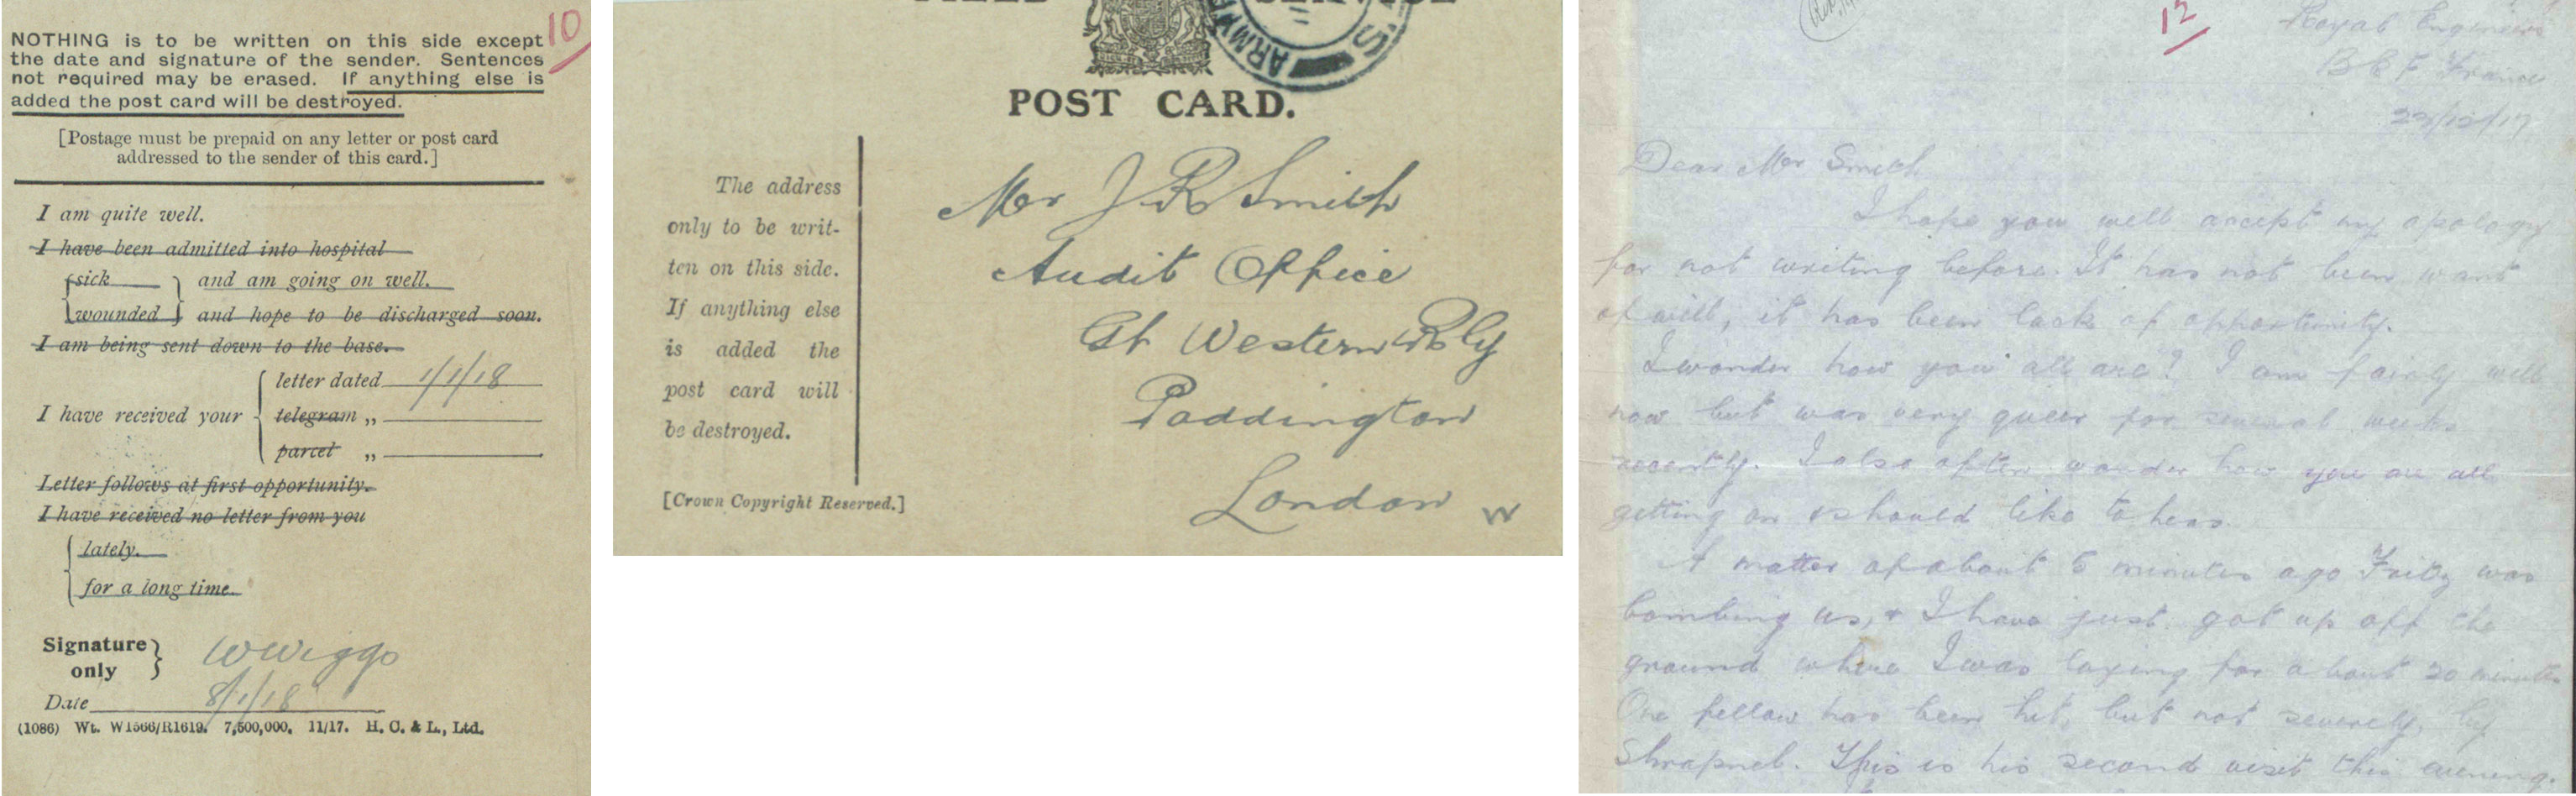 10
NOTHING is to be written on this side except
the date and signature of the sender. Sentences
not required may be erased. If anything else is
added the post card will be destroyed.
[Postage must be prepaid on any letter or post card
addressed to the sender of this card.]
I am quite well.
I have been admitted into hospital
sick
and am going on well.
wounded
and hope to be discharged soon.
I am being sent down to the base.
letter dated 1/1/18
I have received your
telegram „
parcel „
Letter follows at first opportunity.
I have received no letter from you
lately.
for a long time.
Signature
only
W Wiggs
Date 8/1/18
(1086) Wt. W1566/R1619. 7,500,000. 11/17. H. C. & L., Ltd.
ARMY
POST CARD.
The address
only to be writ-
ten on this side.
If anything else
is added the
post card will
be destroyed.
[Crown Copyright Reserved.]
Mr J R Smith
Audit Office
Gt Western Rly
Paddington
London W
12
Royal Engineers
B E F France
/12/17
Dear Mr Smith
I hope you will accept my apology
for not writing before. It has not been want
of will, it has been lack of opportunity.
I wonder how you all are? I am fairly well
now but was very queer for several weeks
recently. I also often wonder how you are all
getting on & should like to hear.
A matter of about 5 minutes ago Fritz was
bombing us, & I have just got up off the
ground where I was laying for about 20 minutes
One fellow has been hit, but not severely, by
Shrapnel. This is his second visit this evening.